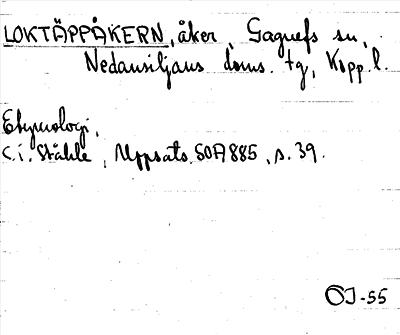 LOKTÄPPÅKERN, åker, Gagnefs sn,
Nedansiljans doms. tg, Kopp. l.
Etymologi,
C. i. Ståhle, Uppsats. SOA 885, s. 39.
OJ-55